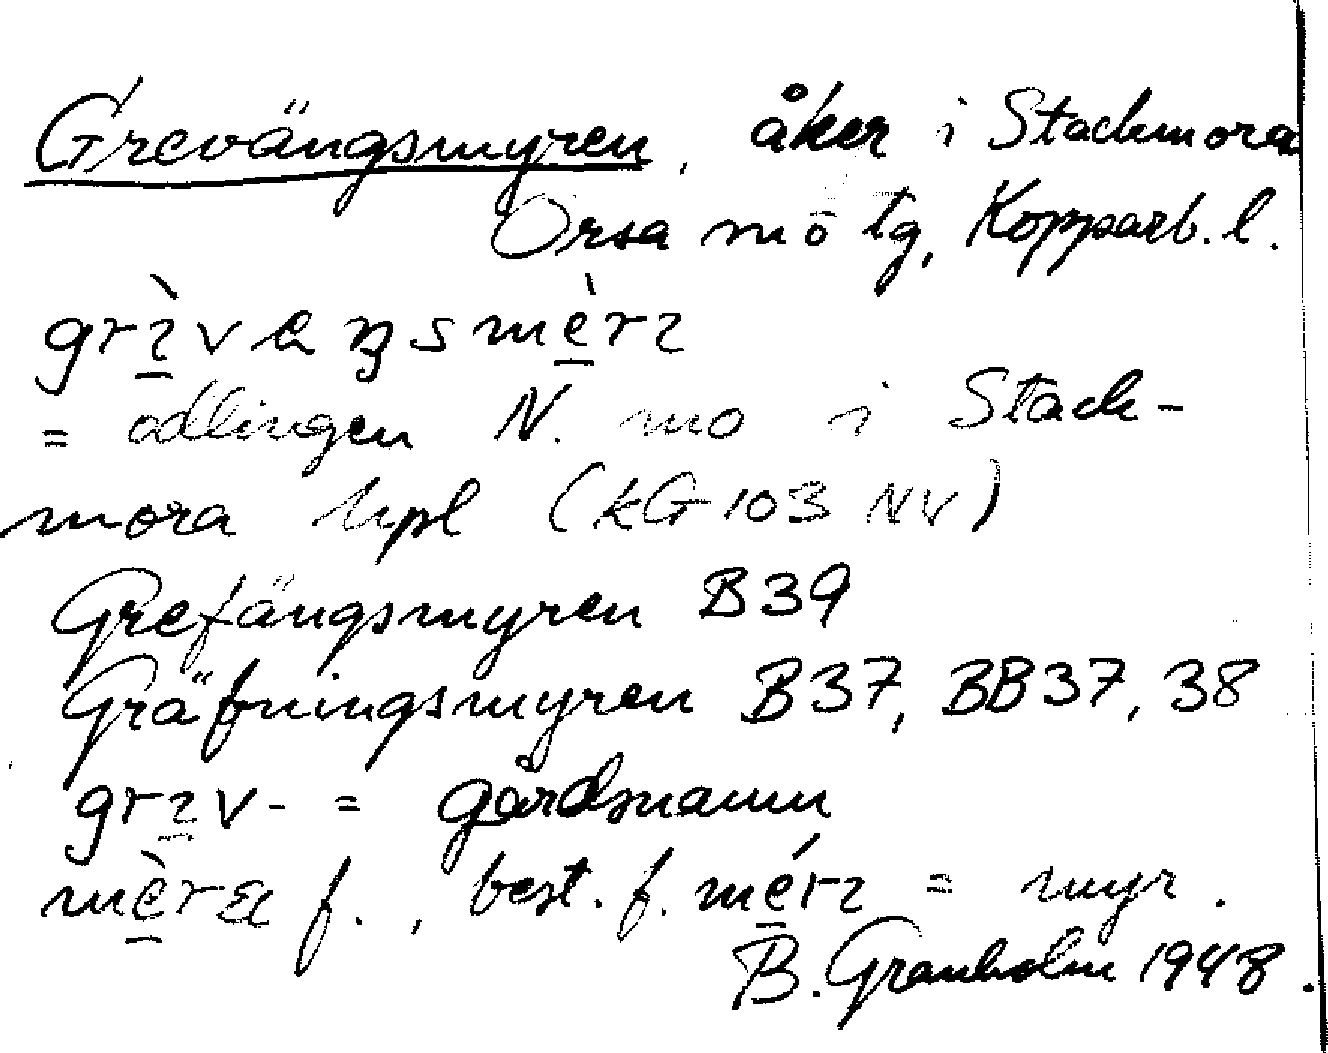 Grevängsmyren, åker i Stackmora
Orsa mo tg, Kopparb. l.
= odlingen N. mo i Stack-
mora kpl (kG 103 NV)
Grefängsmyren B39
Gräfningsmyren B37, BB37, 38
= gårdsnamn
f., best. f. = myr.
B. Granholm 1948.